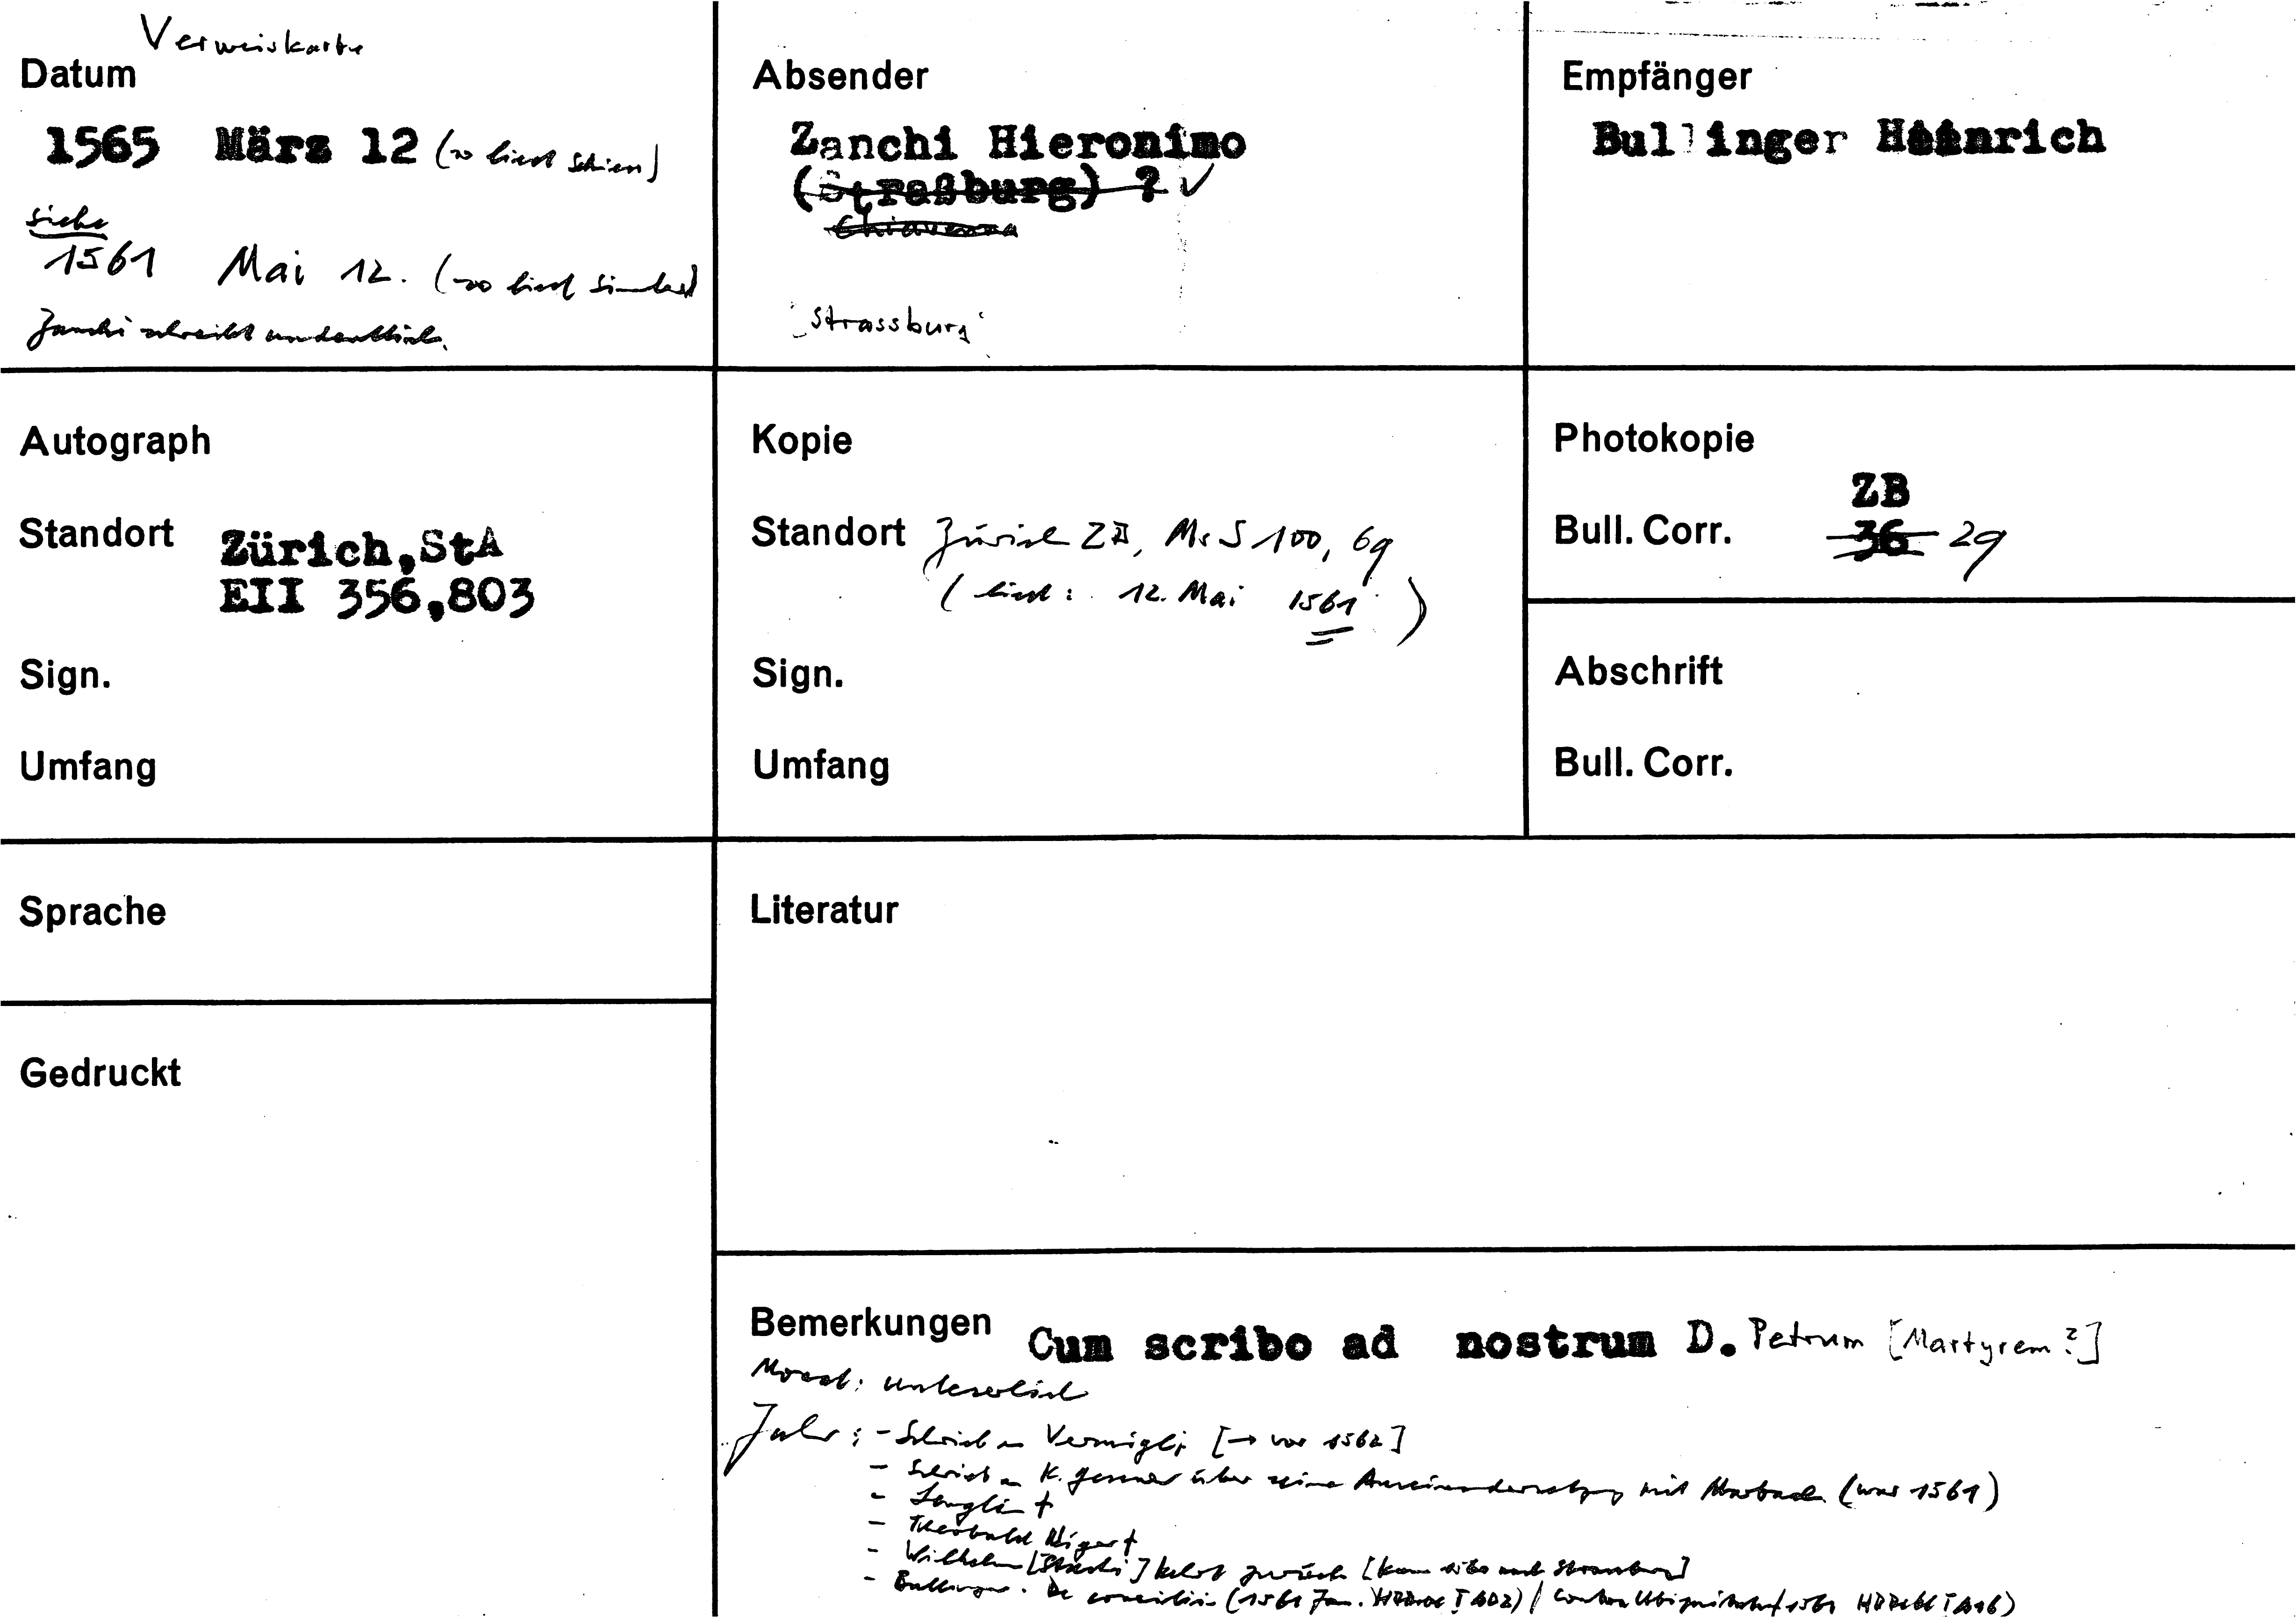 Verweiskarte
Datum
1565 März 12 (so liest Schiess)
siehe
1561 Mai 12. (so liest Simler)
Zanchi schreibt undeutlich.
Absender
Zanchi Hieronimo
(Straßburg) ? √
Chiavenna
Strassburg
Empfänger
Bullinger Heinrich
Autograph
Standort Zürich,StA
EII 356,803
Sign.
Umfang
Kopie
Standort Zürich ZB, Ms S 100, 69
(liest: 12. Mai 1561)
Sign.
Umfang
Photokopie
ZB
Bull. Corr. 36 29
Abschrift
Bull. Corr.
Sprache
Gedruckt
Literatur
Bemerkungen Cum scribo ad nostrum D. Petrum [Martyrem?]
Monat: unleserlich
Jahr: - Schrieb an Vermigli [→ vor 1562]
- Schrieb an K. Gessner über seine Auseinandersetzung mit Marbach (war 1561)
- Lenglin †
- Theobald Niger †
- Wilhelm [Stucki] kehrt zurück [kam nach Strassburg]
- Bullinger: De conciliis (1561 Jan. HBBibl I 402) / Contra 1561 HBBibl I 416)